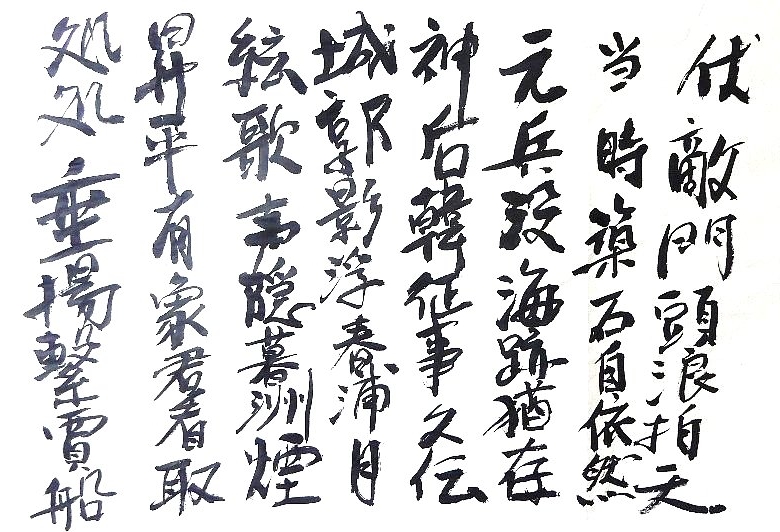 伏敵門頭浪拍天
当時築石自依然
元兵没海跡猶存
神后韓征事久伝
城郭影浮春浦月
絃歌声隠暮洲煙
昇平有象君看取
処処垂楊繋賈船